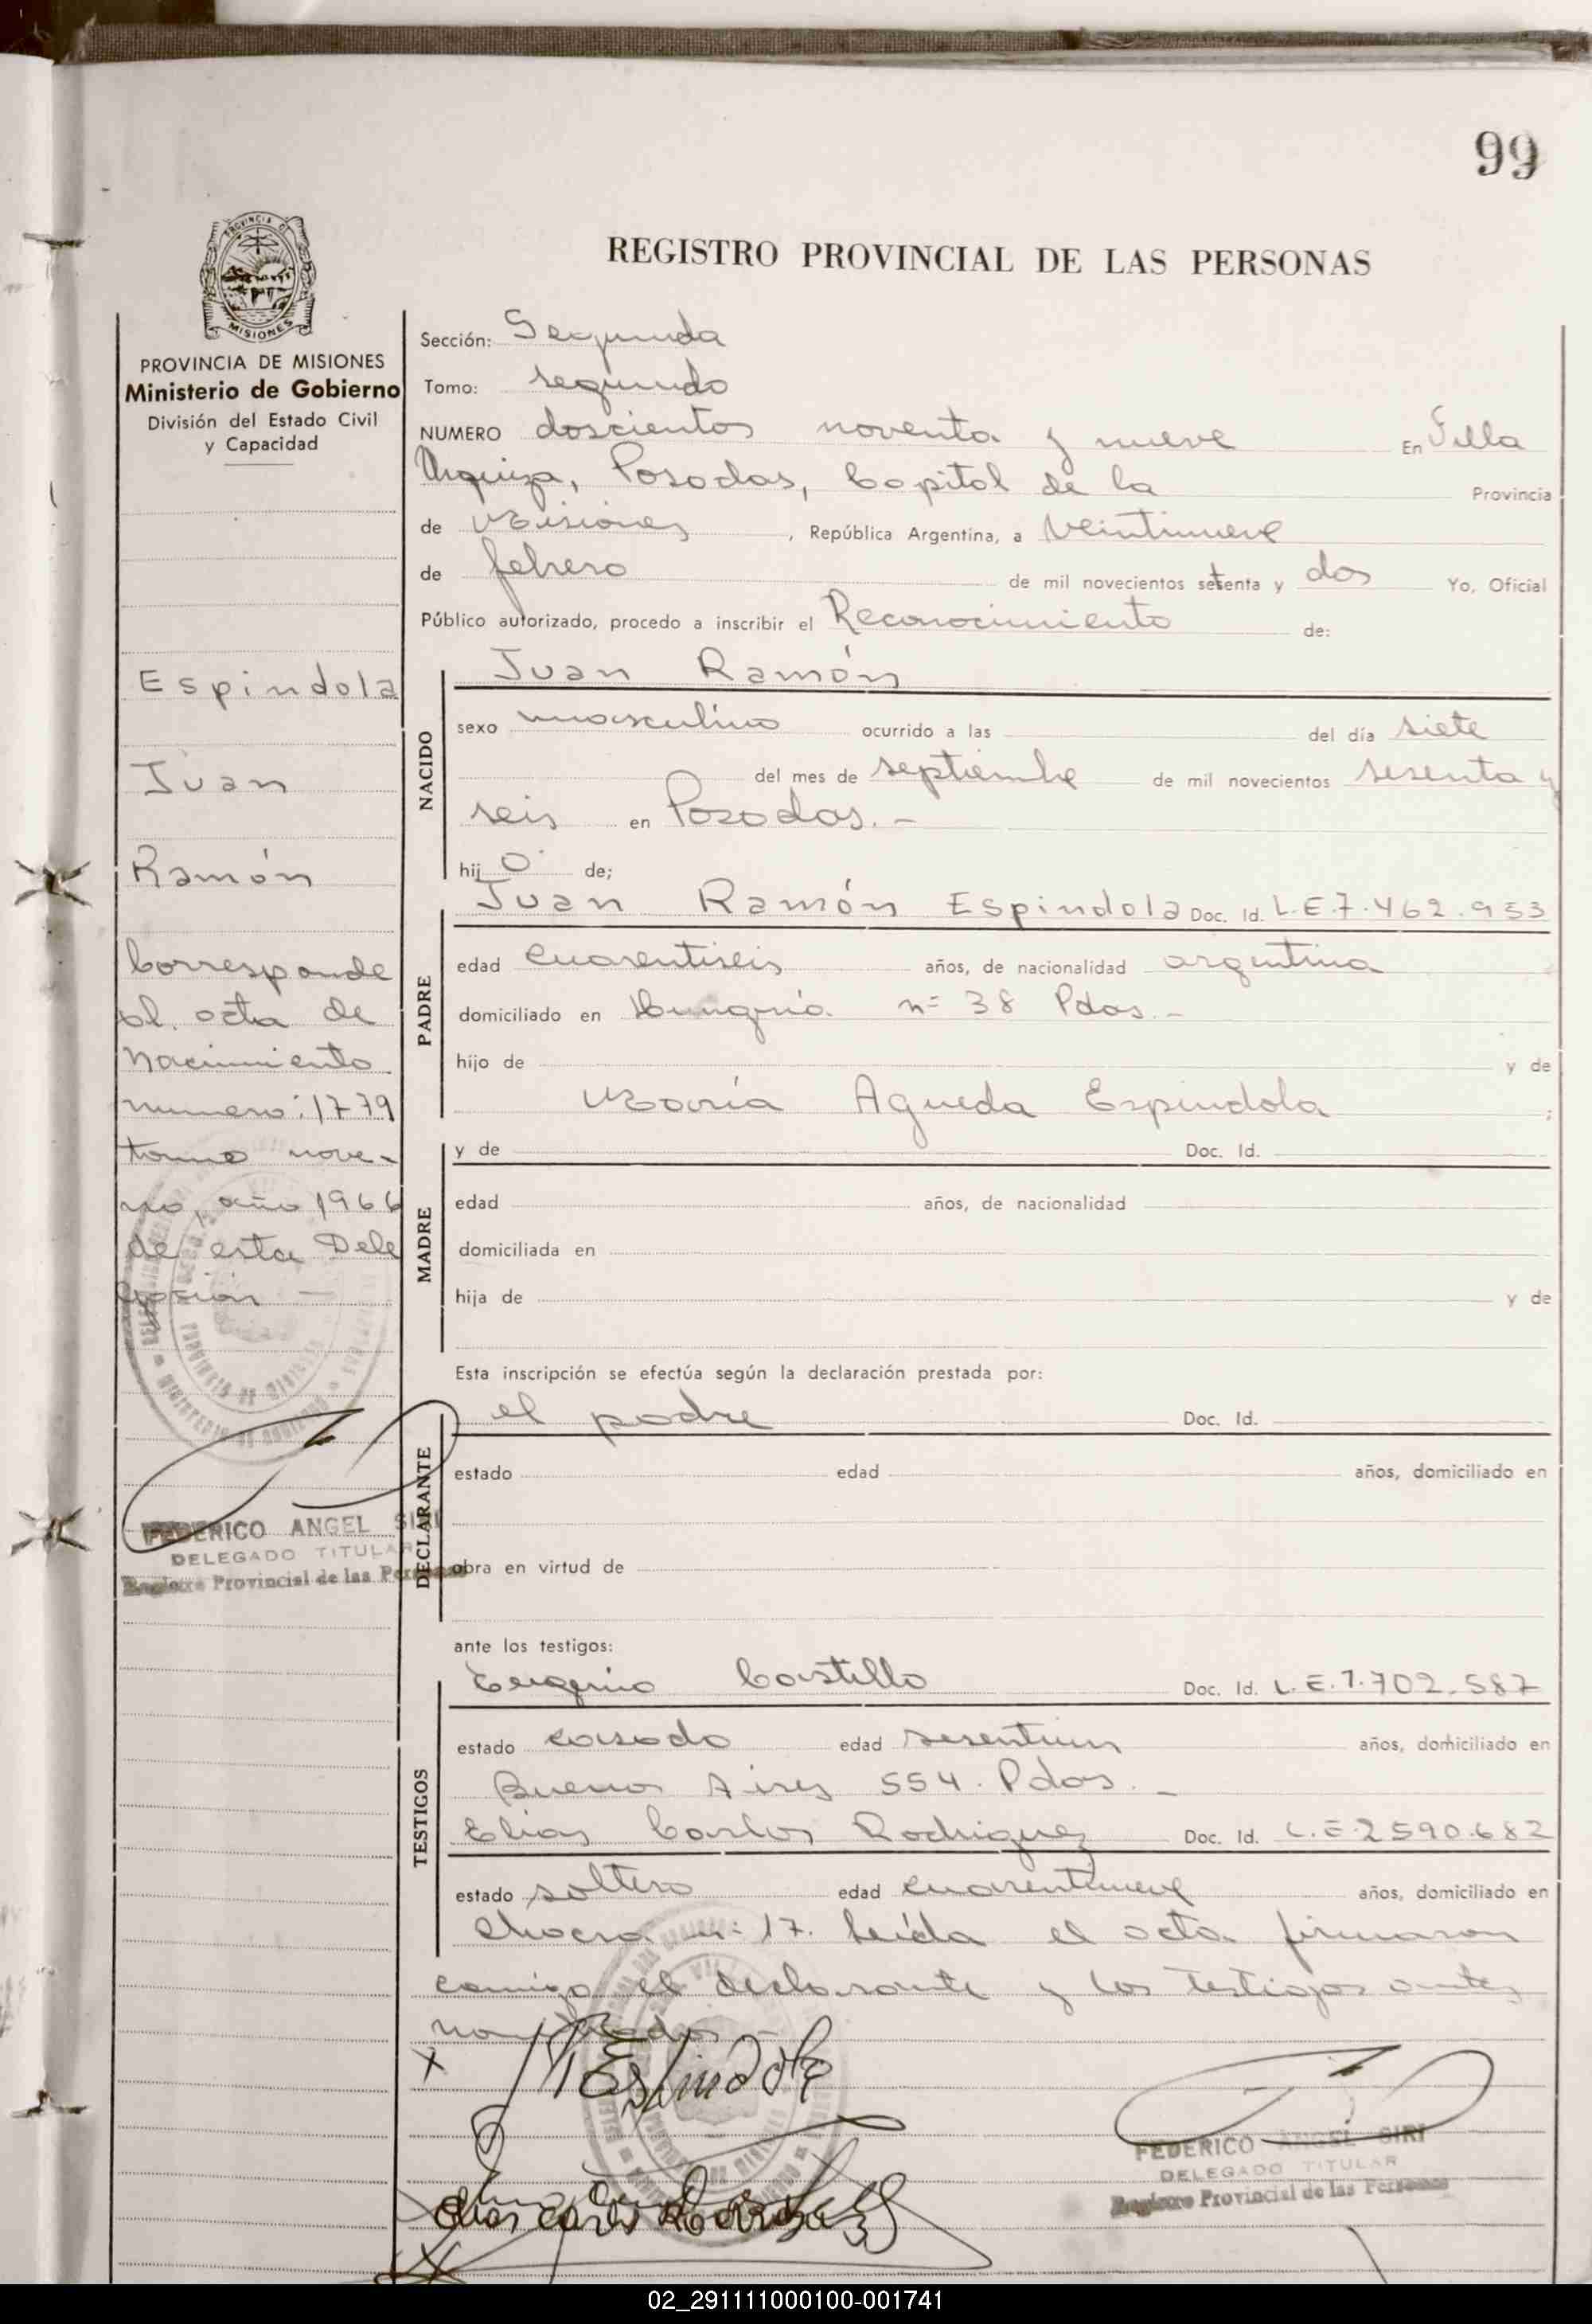 99
PROVINCIA DE
MISIONES
REGISTRO PROVINCIAL DE LAS PERSONAS
PROVINCIA DE MISIONES
Ministerio de Gobierno
División del Estado Civil
y Capacidad
Espindola
Juan
Ramón
Corresponde
al acta de
Nacimiento
numero: 1779
tomo nove-
no, año 1966
de esta Dele
gación —
FEDERICO ANGEL SIRI
DELEGADO TITULAR
Registro Provincial de las Personas
Sección: Segunda
Tomo: segundo
NUMERO doscientos noventa y nueve En Villa
Urquiza, Posadas, Capital de la Provincia
de Misiones, República Argentina, a veintinueve
de febrero de mil novecientos setenta y dos Yo, Oficial
Público autorizado, procedo a inscribir el Reconocimiento de:
NACIDO
Juan Ramón
sexo masculino ocurrido a las del día siete
del mes de septiembre de mil novecientos sesenta y
seis en Posadas.-
hijo de;
PADRE
Juan Ramón Espindola Doc. Id. L.E.7.462.953
edad cuarentiseis años, de nacionalidad argentina
domiciliado en Hungría n= 38 Pdas.-
hijo de y de
María Agueda Espindola ;
MADRE
y de Doc. Id.
edad años, de nacionalidad
domiciliada en
hija de y de
Esta inscripción se efectúa según la declaración prestada por:
DECLARANTE
el padre Doc. Id.
estado edad años, domiciliado en
obra en virtud de
ante los testigos:
TESTIGOS
Eugenio Castillo Doc. Id. L.E.1.702.587
estado casado edad sesentiun años, domiciliado en
Buenos Aires 554. Pdas.-
Elias Carlos Rodriguez Doc. Id. L.E.2590.682
estado soltero edad cuarentinueve años, domiciliado en
chacra n: 17. Leída el acta firmaron
conmigo el declarante y los testigos antes
nombrados -
x
Espindola
Elias Carlos Rodriguez
FEDERICO ANGEL SIRI
DELEGADO TITULAR
Registro Provincial de las Personas
02_291111000100-001741